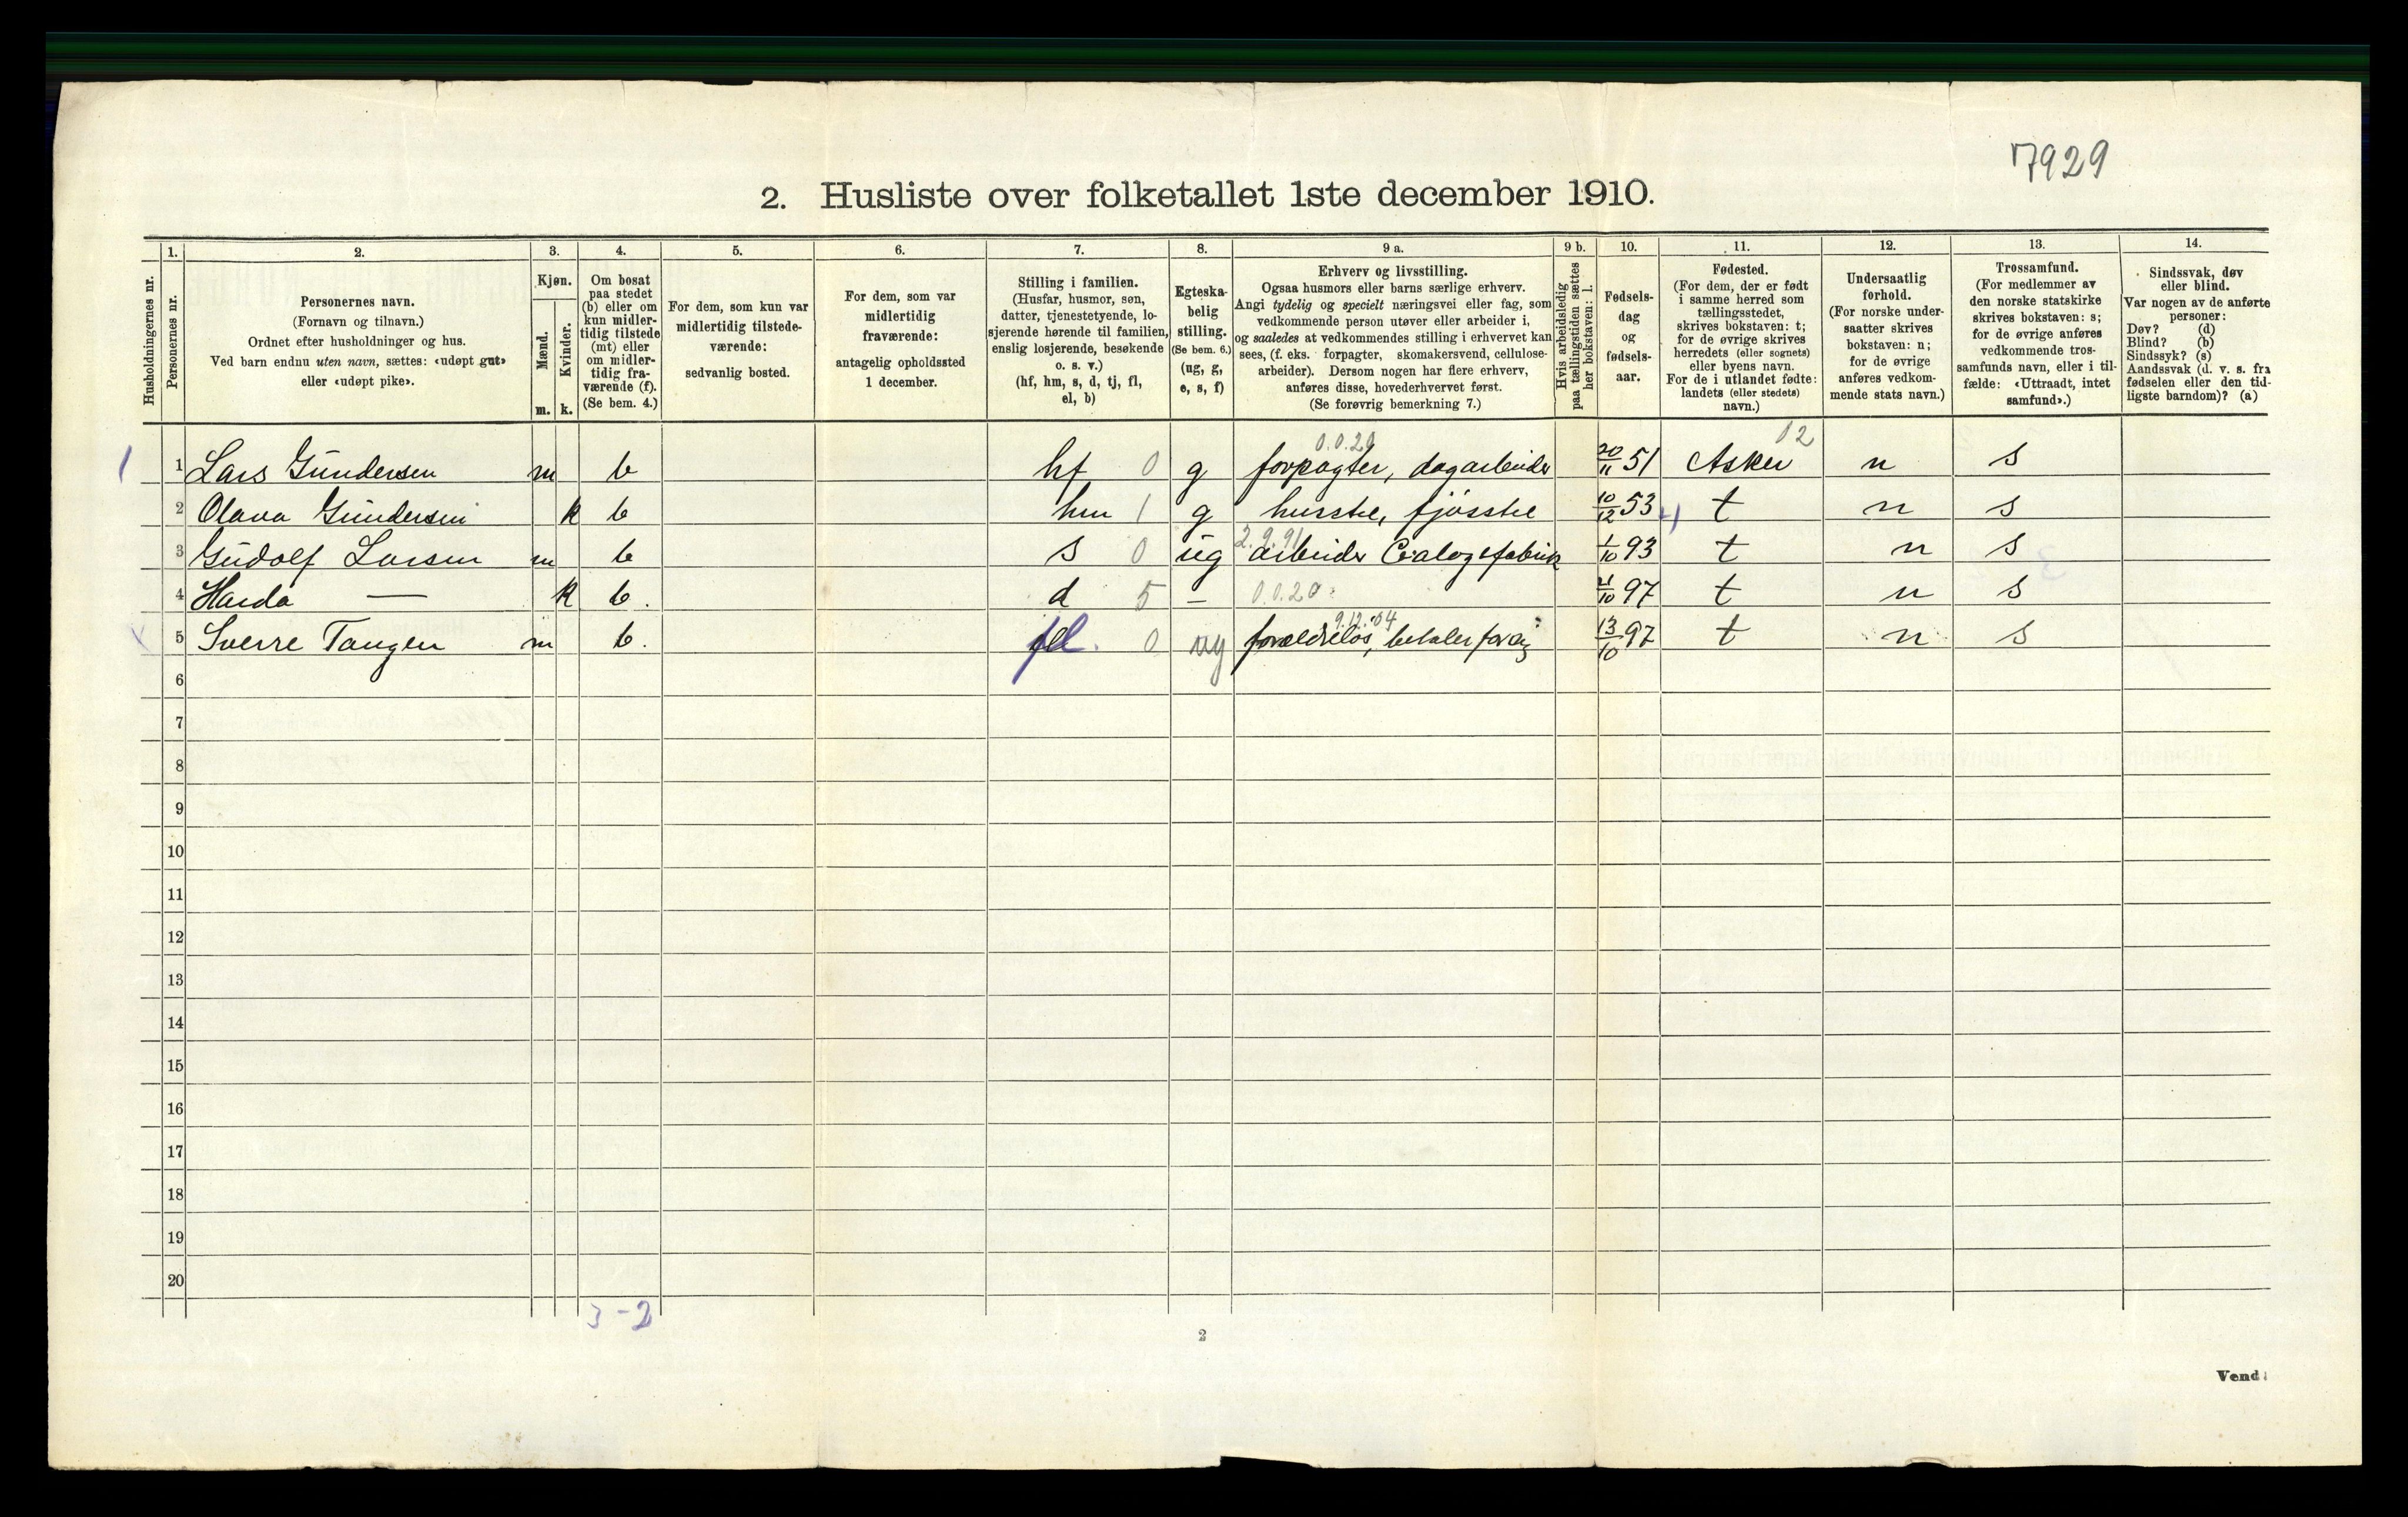 7929
2. Husliste over folketallet 1ste december 1910.
Husholdningernes nr.
1.
Personernes nr.
2.
Personernes navn.
(Fornavn og tilnavn.)
Ordnet efter husholdninger og hus.
Ved barn endnu uten navn, sættes: «udøpt gut»
eller «udøpt pike».
3.
Kjøn.
Mænd.
Kvinder.
m. k.
4.
Om bosat
paa stedet
(b) eller om
kun midler-
tidig tilstede
(mt) eller
om midler-
tidig fra-
værende (f).
(Se bem. 4.)
5.
For dem, som kun var
midlertidig tilstede-
værende:
sedvanlig bosted.
6.
For dem, som var
midlertidig
fraværende:
antagelig opholdssted
1 december.
7.
Stilling i familien.
(Husfar, husmor, søn,
datter, tjenestetyende, lo-
sjerende hørende til familien,
enslig losjerende, besøkende
o. s. v.)
(hf, hm, s, d, tj, fl,
el, b)
8.
Egteska-
belig
stilling.
(Se bem. 6.)
(ug, g,
e, s, f)
9 a.
Erhverv og livsstilling.
Ogsaa husmors eller barns særlige erhverv.
Angi tydelig og specielt næringsvei eller fag, som
vedkommende person utøver eller arbeider i,
og saaledes at vedkommendes stilling i erhvervet kan
sees, (f. eks. forpagter, skomakersvend, cellulose-
arbeider). Dersom nogen har flere erhverv,
anføres disse, hovederhvervet først.
(Se forøvrig bemerkning 7.)
9 b.
Hvis arbeidsledig
paa tællingstiden sættes
her bokstaven: l.
10.
Fødsels-
dag
og
fødsels-
aar.
11.
Fødested.
(For dem, der er født
i samme herred som
tællingsstedet,
skrives bokstaven: t;
for de øvrige skrives
herredets (eller sognets)
eller byens navn.
For de i utlandet fødte:
landets (eller stedets)
navn.)
12.
Undersaatlig
forhold.
(For norske under-
saatter skrives
bokstaven: n;
for de øvrige
anføres vedkom-
mende stats navn.)
13.
Trossamfund.
(For medlemmer av
den norske statskirke
skrives bokstaven: s;
for de øvrige anføres
vedkommende tros-
samfunds navn, eller i til-
fælde: «Uttraadt, intet
samfund».)
14.
Sindssvak, døv
eller blind.
Var nogen av de anførte
personer:
Døv? (d)
Blind? (b)
Sindssyk? (s)
Aandssvak (d. v. s. fra
fødselen eller den tid-
ligste barndom)? (a)
0.0.20 02
1 1 Lars Gundersen m b hf 0 g forpagter, dagarbeider 20/11 51 Asker n s
2 Olava Gundersen k b hm 1 g husstel, fjøsstel 10/12 53 t n s
2.9.91
3 Gudolf Larsen m b s 0 ug arbeider 1/10 93 t n s
4 Harda — k b. d 5 – 0.0.20 21/10 97 t n s
9.12.04
5 Sverre Tangen m b. fl. 0 ug forældreløs, betaler for sig 13/10 97 t n s
6
7
8
9
10
11
12
13
14
15
16
17
18
19
20
3 - 2
2
Vend!